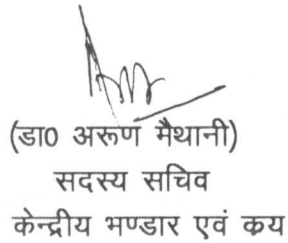 (डा0 अरूण मैथानी)
सदस्य सचिव
केन्द्रीय भण्डार एवं कय